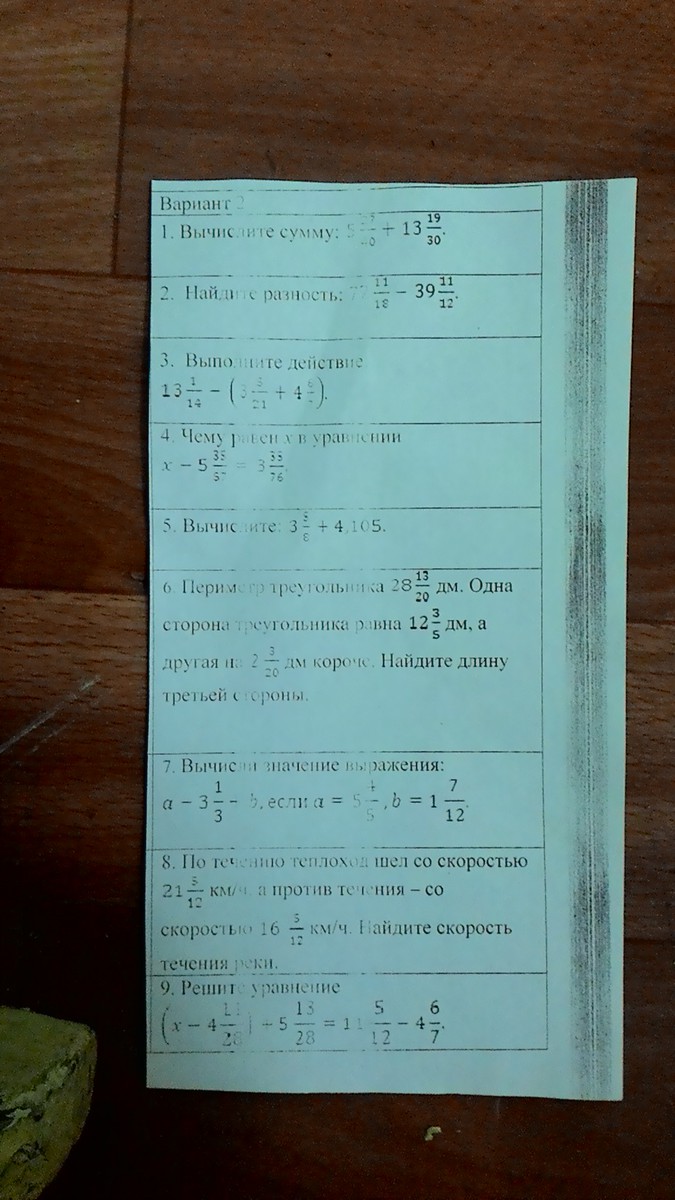 Вариант 2
1. Вычислите сумму: 5 /20 + 13 19/30.
2. Найдите разность: 77 11/18 − 39 11/12.
3. Выполните действие
13 1/14 − (3 5/21 + 4 ).
4. Чему равен x в уравнении
x − 5 35/57 = 3 35/76.
5. Вычислите: 3 5/8 + 4,105.
6. Периметр треугольника 28 13/20 дм. Одна
сторона треугольника равна 12 3/5 дм, а
другая на 2 3/20 дм короче. Найдите длину
третьей стороны.
7. Вычисли значение выражения:
a − 3 1/3 − b, если a = 5 4/5, b = 1 7/12.
8. По течению теплоход шел со скоростью
21 5/12 км/ч, а против течения – со
скоростью 16 5/12 км/ч. Найдите скорость
течения реки.
9. Решите уравнение
(x − 4 11/28) + 5 13/28 = 11 5/12 − 4 6/7.